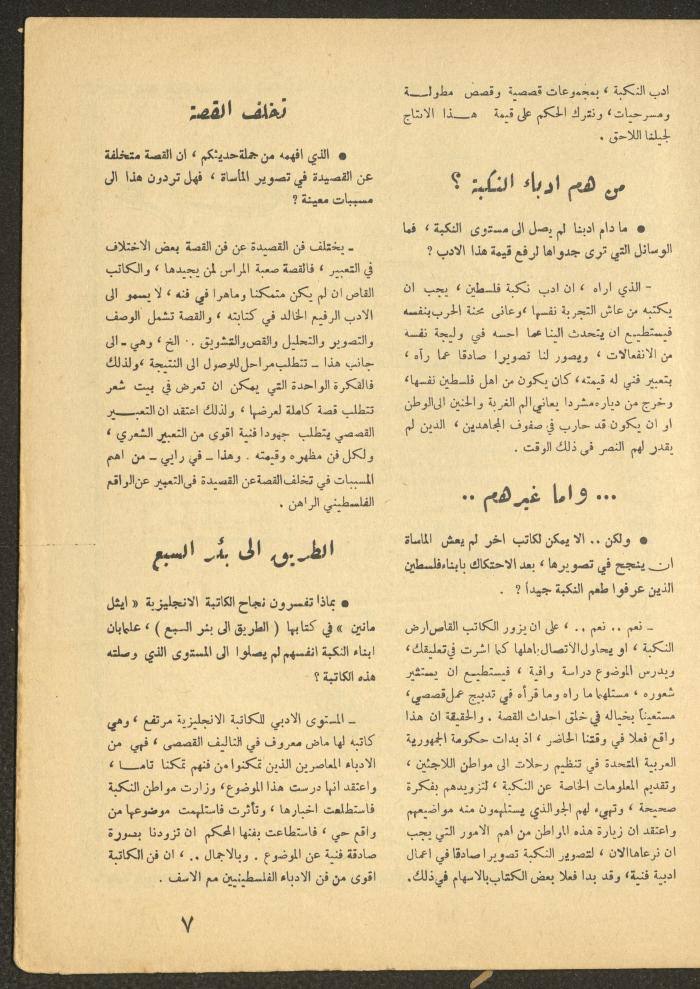 ادب النكبة ، بمجموعات قصصية وقصص مطولة
ومسرحيات، ونترك الحكم على قيمة هذا الانتاج
لجيلنا اللاحق .
من هم ادباء النكبة ؟
● ما دام ادبنا لم يصل الى مستوى النكبة ، فما
الوسائل التي ترى جدواها لرفع قيمة هذا الادب ؟
- الذي اراه ، ان ادب نكبة فلسطين ، يجب ان
يكتبه من عاش التجربة نفسها، وعانى محنة الحرب بنفسه
فيستطيع ان يتحدث الينا عما احسه في وليجة نفسه
من الانفعالات ، ويصور لنا تصويرا صادقا عما رآه ،
بتعبير فني له قيمته، كان يكون من اهل فلسطين نفسها،
وخرج من دياره مشردا يعاني الم الغربة والحنين الى الوطن
او ان يكون قد حارب في صفوف المجاهدين ، الذين لم
يقدر لهم النصر في ذلك الوقت .
... واما غيرهم ..
● ولكن .. الا يمكن لكاتب اخر لم يعش المأساة
ان ينجح في تصويرها ، بعد الاحتكاك بابناء فلسطين
الذين عرفوا طعم النكبة جيداً ؟ .
ـ نعم .. نعم .. ، على ان يزور الكاتب القاص ارض
النكبة ، او يحاول الاتصال باهلها كما اشرت في تعليقك،
ويدرس الموضوع دراسة وافية ، فيستطيع ان يستثير
شعوره ، مستلهما ما راه وما قرأه في تدبيج عمل قصصي،
مستعيناً بخياله في خلق احداث القصة . والحقيقة ان هذا
واقع فعلا في وقتنا الحاضر ، اذ بدات حكومة الجمهورية
العربية المتحدة في تنظيم رحلات الى مواطن اللاجئين ،
وتقديم المعلومات الخاصة عن النكبة ، لتزويدهم بفكرة
صحيحة ، وتهيء لهم الجو الذي يستلهمون منه مواضيعهم
واعتقد ان زيارة هذه المواطن من اهم الامور التي يجب
ان نرعاها الان ، لتصوير النكبة تصويرا صادقا في اعمال
ادبية فنية، وقد بدا فعلا بعض الكتاب بالاسهام في ذلك.
تخلف القصة
● الذي افهمه من جملة حديثكم ، ان القصة متخلفة
عن القصيدة في تصوير المأساة ، فهل تردون هذا الى
مسببات معينة ؟
ـ يختلف فن القصيدة عن فن القصة بعض الاختلاف
في التعبير ، فالقصة صعبة المراس لمن يجيدها ، والكاتب
القاص ان لم يكن متمكنا وماهرا في فنه ، لا يسمو الى
الادب الرفيع الخالد في كتابته ، والقصة تشمل الوصف
والتصوير والتحليل والقص والتشويق .. الخ ، وهي ـ الى
جانب هذا ـ تتطلب مراحل للوصول الى النتيجة ،ولذلك
فالفكرة الواحدة التي يمكن ان تعرض في بيت شعر
تتطلب قصة كاملة لعرضها ، ولذلك اعتقد ان التعبير
القصصي يتطلب جهودا فنية اقوى من التعبير الشعري ،
ولكل فن مظهره وقيمته . وهذا ـ في رايي ـ من اهم
المسببات في تخلف القصة عن القصيدة في التعبير عن الواقع
الفلسطيني الراهن .
الطريق الى بئر السبع
● بماذا تفسرون نجاح الكاتبة الانجليزية « ايثل
مانين » في كتابها ( الطريق الى بئر السبع ) ، علما بان
ابناء النكبة انفسهم لم يصلوا الى المستوى الذي وصلته
هذه الكاتبة ؟
ـ المستوى الادبي للكاتبة الانجليزية مرتفع ، وهي
كاتبه لها ماض معروف في التاليف القصصى ، فهي من
الادباء المعاصرين الذين تمكنوا من فنهم تمكنا تاما ،
واعتقد انها درست هذا الموضوع، وزارت مواطن النكبة
فاستطلعت اخبارها ، وتأثرت فاستلهمت موضوعها من
واقع حي ، فاستطاعت بفنها المحكم ان تزودنا بصورة
صادقة فنية عن الموضوع . وبالاجمال .. ، ان فن الكاتبة
اقوى من فن الادباء الفلسطينيين مع الاسف .
٧